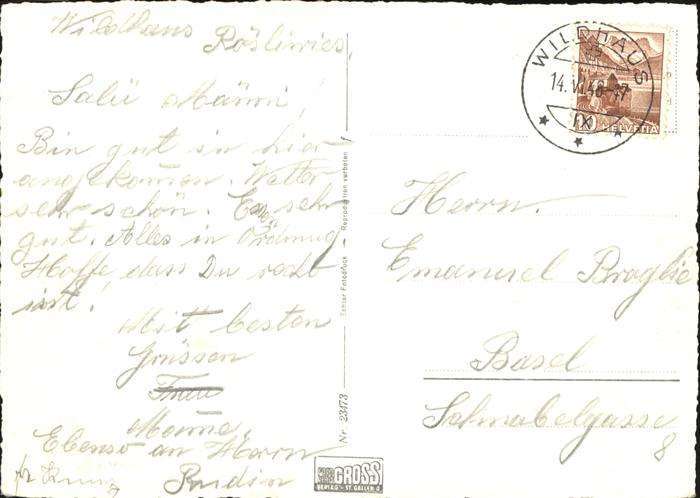 Wildhaus Rösliwies.
Salü
Bin gut in hier
angekomen. Wetter
sehr schön. Essen sehr
gut. Alles in Ordnung.
Hoffe, dass Du recht
isst!
Mit besten
Grüssen
Frau
Ebenso an Herrn
Rudin
Nr. 23473
Tables Reproduktion verboten
GROSS
VERLAG - ST. GALLEN
WILDHAUS
14.VI.48-17
IX
HELVETIA
Herrn.
Emanuel Broglie
Basel
Schnabelgasse
8